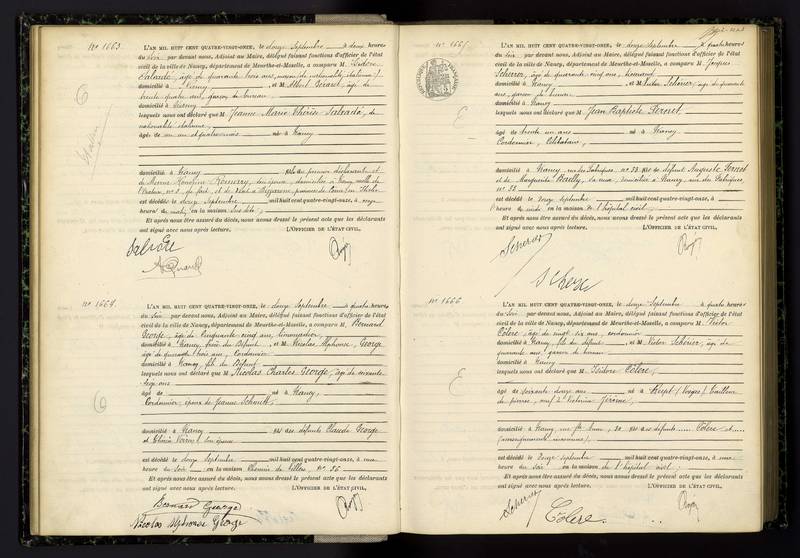 No 1663
L'AN MIL HUIT CENT QUATRE-VINGT-ONZE, le douze Septembre à heures
du Soir par devant nous, Adjoint au Maire, délégué faisant fonctions d'officier de l'état
civil de la ville de Nancy, département de Meurthe-et-Moselle, a comparu M. Isidore
âgé de quarante trois ans, de nationalité italienne
domicilié à Nancy et M Albert âgé de
trente quatre ans, garçon de bureau
domicilié à Nancy
lesquels nous ont déclaré que M Jeanne Marie Thérèse de
nationalité italienne,
âgé de né à Nancy
domicilié à Nancy du premier déclarant et
de son épouse, domiciliés à Nancy
est décédé le douze Septembre mil huit cent quatre-vingt-onze, à onze
heures du matin, en la maison
Et après nous être assuré du décès, nous avons dressé le présent acte que les déclarants
ont signé avec nous après lecture. L'OFFICIER DE L'ÉTAT CIVIL,
No 1664
L'AN MIL HUIT CENT QUATRE-VINGT-ONZE, le douze Septembre à quatre heures
du Soir par devant nous, Adjoint au Maire, délégué faisant fonctions d'officier de l'état
civil de la ville de Nancy, département de Meurthe-et-Moselle, a comparu M. Bernard
George, âgé de cinquante cinq ans,
domicilié à Nancy, frère du défunt et M Nicolas Alphonse George
âgé de quarante trois ans, Cordonnier
domicilié à Nancy, fils du défunt
lesquels nous ont déclaré que M Nicolas Charles George, âgé de soixante
six ans
âgé de né à Nancy,
Cordonnier, époux de Jeanne Schmitt,
domicilié à Nancy fils des défunts Claude George
et son épouse
est décédé le douze Septembre mil huit cent quatre-vingt-onze, à une
heure du soir en la maison Chemin de Villers, No 36
Et après nous être assuré du décès, nous avons dressé le présent acte que les déclarants
ont signé avec nous après lecture. L'OFFICIER DE L'ÉTAT CIVIL,
Bernard George
Nicolas Alphonse George
No 1665
L'AN MIL HUIT CENT QUATRE-VINGT-ONZE, le douze Septembre à quatre heures
du Soir, par devant nous, Adjoint au Maire, délégué faisant fonctions d'officier de l'état
civil de la ville de Nancy, département de Meurthe-et-Moselle, a comparu M. Jacques
Scherrer, âgé de quarante cinq ans,
domicilié à Nancy et M Victor Scherrer, âgé de quarante
ans, garçon de bureau
domicilié à Nancy
lesquels nous ont déclaré que M Jean Baptiste Pernet
âgé de trente un ans né à Nancy
Cordonnier, Célibataire,
domicilié à Nancy, rue des Fabriques, No 33 fils de défunt Auguste Pernet
et de Marguerite Bailly, sa veuve, domiciliée à Nancy, rue des Fabriques
No 33
est décédé le douze Septembre mil huit cent quatre-vingt-onze, à
heure de en la maison de l'hôpital civil
Et après nous être assuré du décès, nous avons dressé le présent acte que les déclarants
ont signé avec nous après lecture. L'OFFICIER DE L'ÉTAT CIVIL,
Scherrer
No 1666
L'AN MIL HUIT CENT QUATRE-VINGT-ONZE, le douze Septembre à quatre heures
du Soir par devant nous, Adjoint au Maire, délégué faisant fonctions d'officier de l'état
civil de la ville de Nancy, département de Meurthe-et-Moselle, a comparu M. Victor
Colere, âgé de vingt six ans, cordonnier
domicilié à Nancy, fils du défunt et M Victor Scherrer, âgé de
quarante ans, garçon de bureau
domicilié à Nancy
lesquels nous ont déclaré que M Isidore Colere,
âgé de soixante douze ans né à Rupt (Vosges) tailleur
de pierres, veuf de Victorine Jérôme,
domicilié à Nancy, rue 30 fils des défunts ..... Colere et .....
(renseignements inconnus),
est décédé le douze Septembre mil huit cent quatre-vingt-onze, à une
heure du soir en la maison de l'hôpital civil,
Et après nous être assuré du décès, nous avons dressé le présent acte que les déclarants
ont signé avec nous après lecture. L'OFFICIER DE L'ÉTAT CIVIL,
Scherrer
Colere